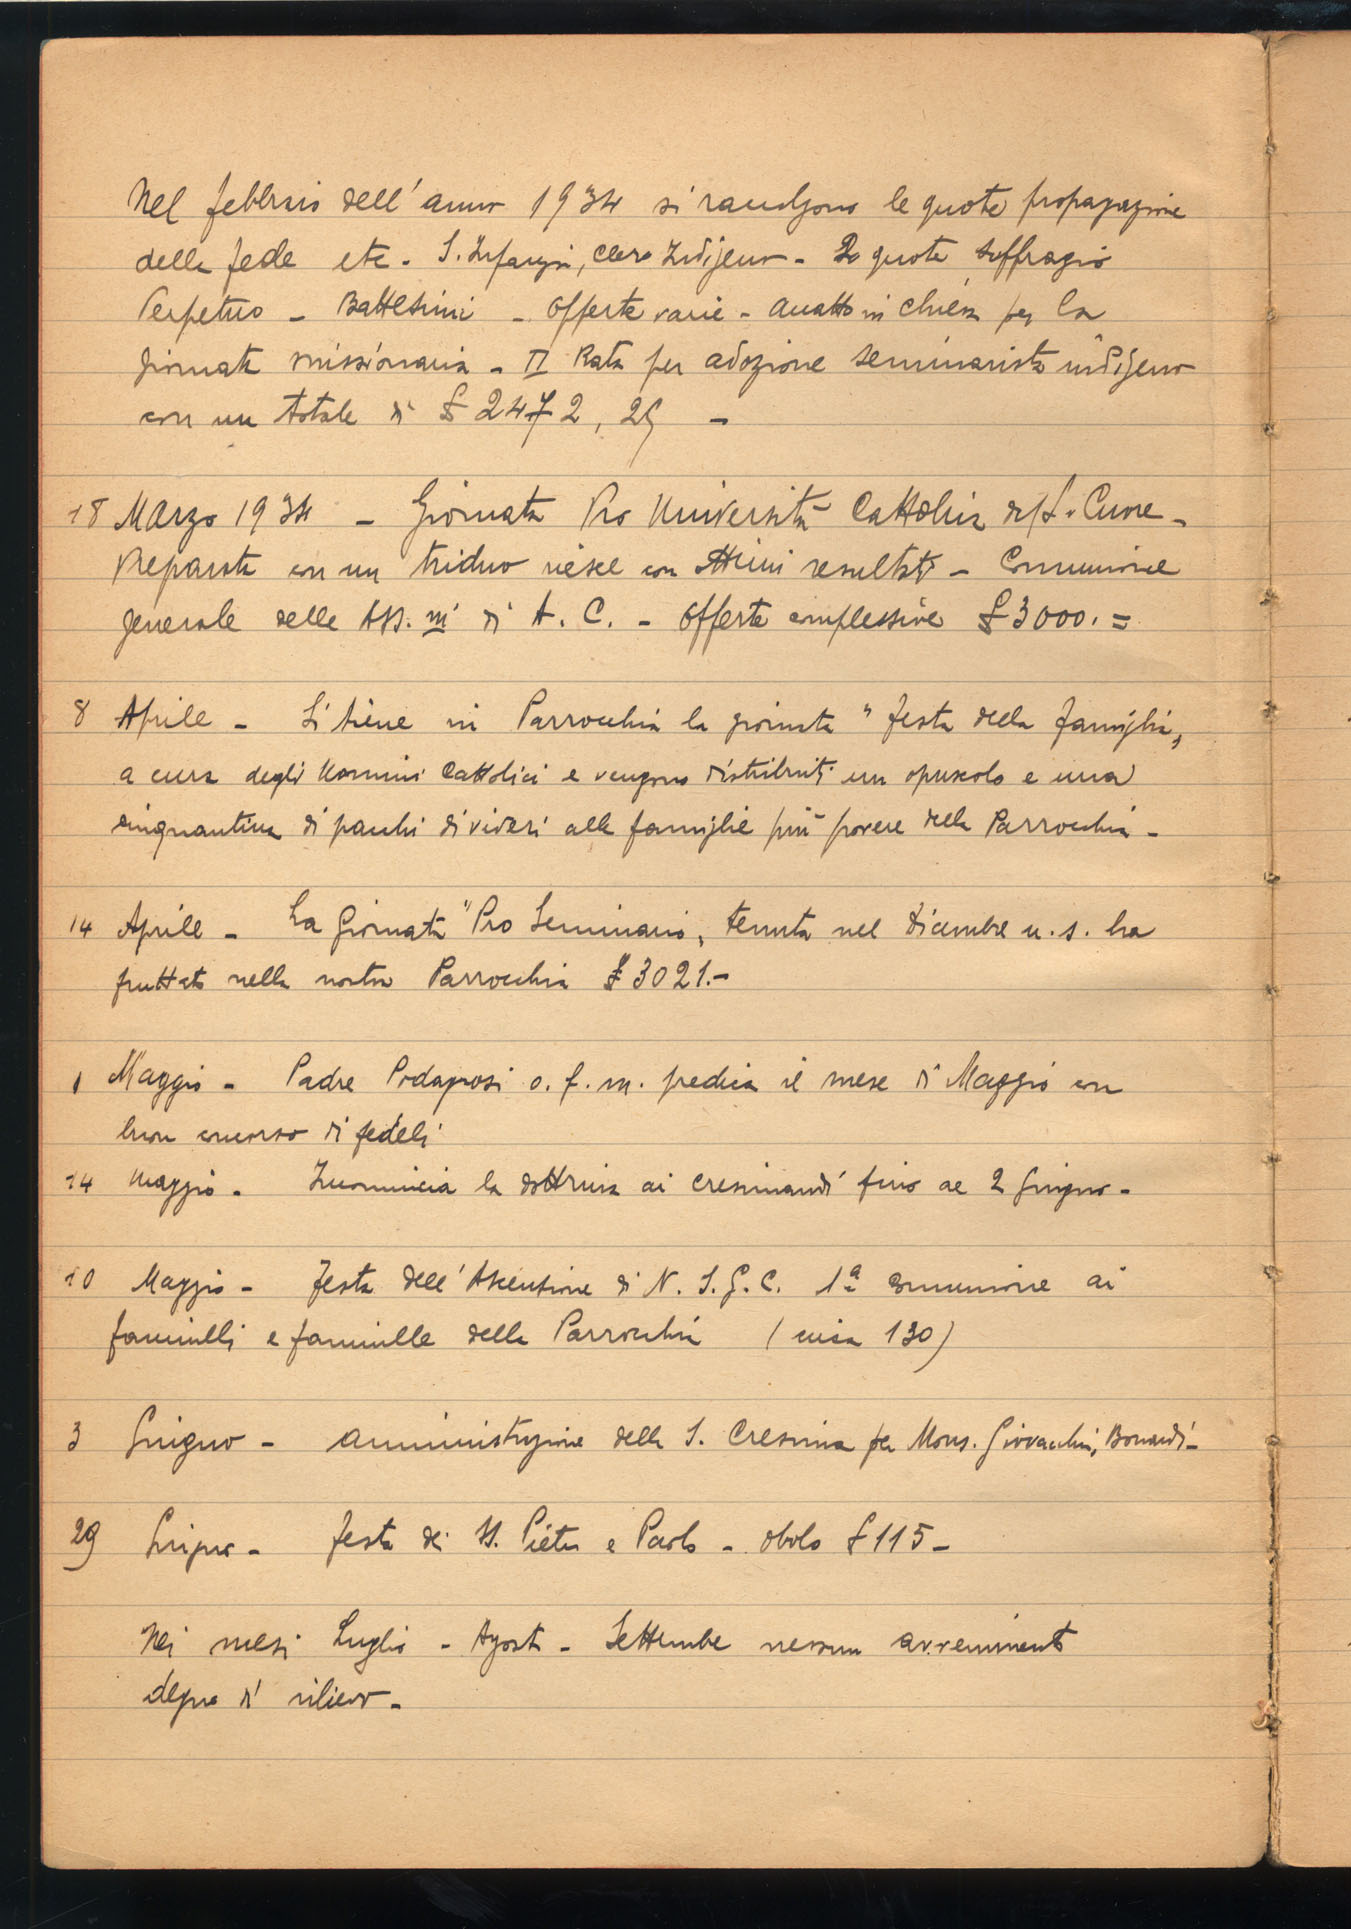 Nel febbraio dell'anno 1934 si raccolgono le quote propagazione
della fede etc. S. Infanzia, Clero Indigeno - 20 quote suffragio
Perpetuo - Battesimi - offerte varie - accatto in chiesa per la
giornata missionaria - II Rata per adozione seminarista indigeno
con un totale di £ 2472, 25 -
18 Marzo 1934 - Giornata Pro Università Cattolica del S. Cuore -
Preparata con un triduo riesce con ottimi resultati - Comunione
generale delle Ass.ni di A. C. - offerte complessive £ 3000. =
8 Aprile - Si tiene in Parrocchia la giornata "festa della famiglia„
a cura degli Uomini Cattolici e vengono distribuiti un opuscolo e una
cinquantina di pacchi di viveri alle famiglie più povere della Parrocchia -
14 Aprile - La Giornata "Pro Seminario„ tenuta nel dicembre u. s. ha
fruttato nella nostra Parrocchia £ 3021. -
1 Maggio - Padre o. f. m. predica il mese di Maggio con
buon concorso di fedeli
14 Maggio - Incomincia la dottrina ai cresimandi fino al 2 Giugno -
10 Maggio - festa dell'Ascensione di N. S. G. C. 1ª comunione ai
fanciulli e fanciulle della Parrocchia (circa 130)
3 Giugno - amministrazione della S. Cresima per Mons. Giovacchino Bonardi -
29 Giugno - festa dei SS. Pietro e Paolo - obolo £ 115 -
Nei mesi Luglio - Agosto - Settembre nessun avvenimento
degno di rilievo -